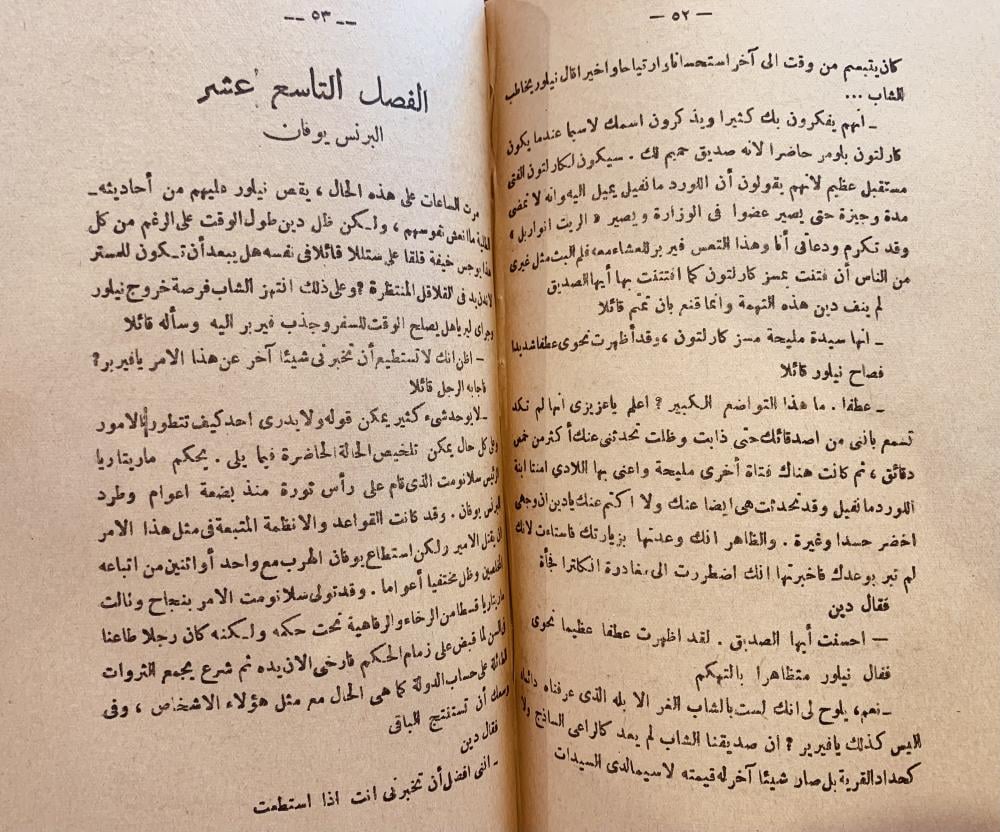 — ٥٢ —
كان يتبعهم من وقت الى آخر استحسانا وارتياحا واخيرا قال نيلور يخاطب
الشاب ...
ـ انهم يفكرون بك كثيرا ويذكرون اسمك لاسيما عندما يكون
كارلتون بلومر حاضرا لانه صديق حميم لك . سيكون لكارلتون الفتى
مستقبل عظيم لانهم يقولون أن اللورد مانفيل يميل اليه وانه لا تمضى
مدة وجيزة حتى يصير عضوا فى الوزارة ويصير « الريت انورابل »
وقد تكرم ودعانى أنا وهذا التعس فيربر للعشاء معه ، فلم البث مثل غيرى
من الناس أن فتنت بمسز كارلتون كما افتتنت بها أيها الصديق
لم ينف دين هذه التهمة وانما قنع بان تمتم قائلا
ـ انها سيدة مليحة مسز كارلتون ، وقد أظهرت نحوى عطفا شديدا
فصاح نيلور قائلا
ـ عطفا . ما هذا التواضع الكبير ? اعلم ياعزيزى انها لم تكد
تسمع بانى من اصدقائك حتى ذابت وظلت تحدثنى عنك أكثر من خمس
دقائق ، ثم كانت هناك فتاة أخرى مليحة واعنى بها اللادي امنتا ابنة
اللورد مانفيل وقد تحدثت هى ايضا عنك ولا اكتم عنك يادين ان وجهى
اخضر حسدا وغيرة . والظاهر انك وعدتها بزيارتك فاستاءت لانك
لم تبر بوعدك فاخبرتها انك اضطررت الى مغادرة انكلترا فجأة
فقال دين
— احسنت أيها الصديق . لقد اظهرت عطفا عظيما نحوى
فقال نيلور متظاهرا بالتهكم
ـ نعم ، يلوح لى انك لست بالشاب الغر الابله الذى عرفناه دائما
اليس كذلك يافيربر ? ان صديقنا الشاب لم يعد كالراعى الساذج ولا
كحداد القرية بل صار شيئا آخر له قيمته لاسيما لدى السيدات
— ٥٣ —
الفصل التاسع عشر
البرنس يوفان
مرت الساعات على هذه الحال ، يقص نيلور عليهم من أحاديثه
ما انعش نفوسهم ، ولكن ظل دين طول الوقت على الرغم من كل
هذا يوجس خيفة قلقا على ستللا قائلا فى نفسه هل يبعد أن تكون للمستر
لاندن يد فى القلاقل المنتظرة ? وعلى ذلك انتهز الشاب فرصة خروج نيلور
وجراى ليريا هل يصلح الوقت للسفر وجذب فيربر اليه وسأله قائلا
ـ اظن انك لا تستطيع أن تخبرنى شيئا آخر عن هذا الامر يافيربر ?
فاجابه الرجل قائلا
ـ لا يوجد شىء كثير يمكن قوله ولا يدرى احد كيف تتطور الامور
وعلى كل حال يمكن تلخيص الحالة الحاضرة فيما يلى . يحكم ماريتاريا
الرئيس سلانومت الذى قام على رأس ثورة منذ بضعة اعوام وطرد
البرنس يوفان . وقد كانت القواعد والانظمة المتبعة فى مثل هذا الامر
ان يقتل الامير ولكن استطاع يوفان الهرب مع واحد أو اثنين من اتباعه
المخلصين وظل مختفيا أعواما . وقد تولى سلانومت الامر بنجاح ونالت
ماريتاريا قسطا من الرخاء والرفاهية تحت حكمه ولكنه كان رجلا طاعنا
فى السن لما قبض على زمام الحكم فارخى الان يده ثم شرع يجمع الثروات
الطائلة على حساب الدولة كما هى الحال مع مثل هؤلاء الاشخاص ، وفى
وسعك أن تستنتج الباقى
فقال دين
ـ انى افضل أن تخبرنى انت اذا استطعت